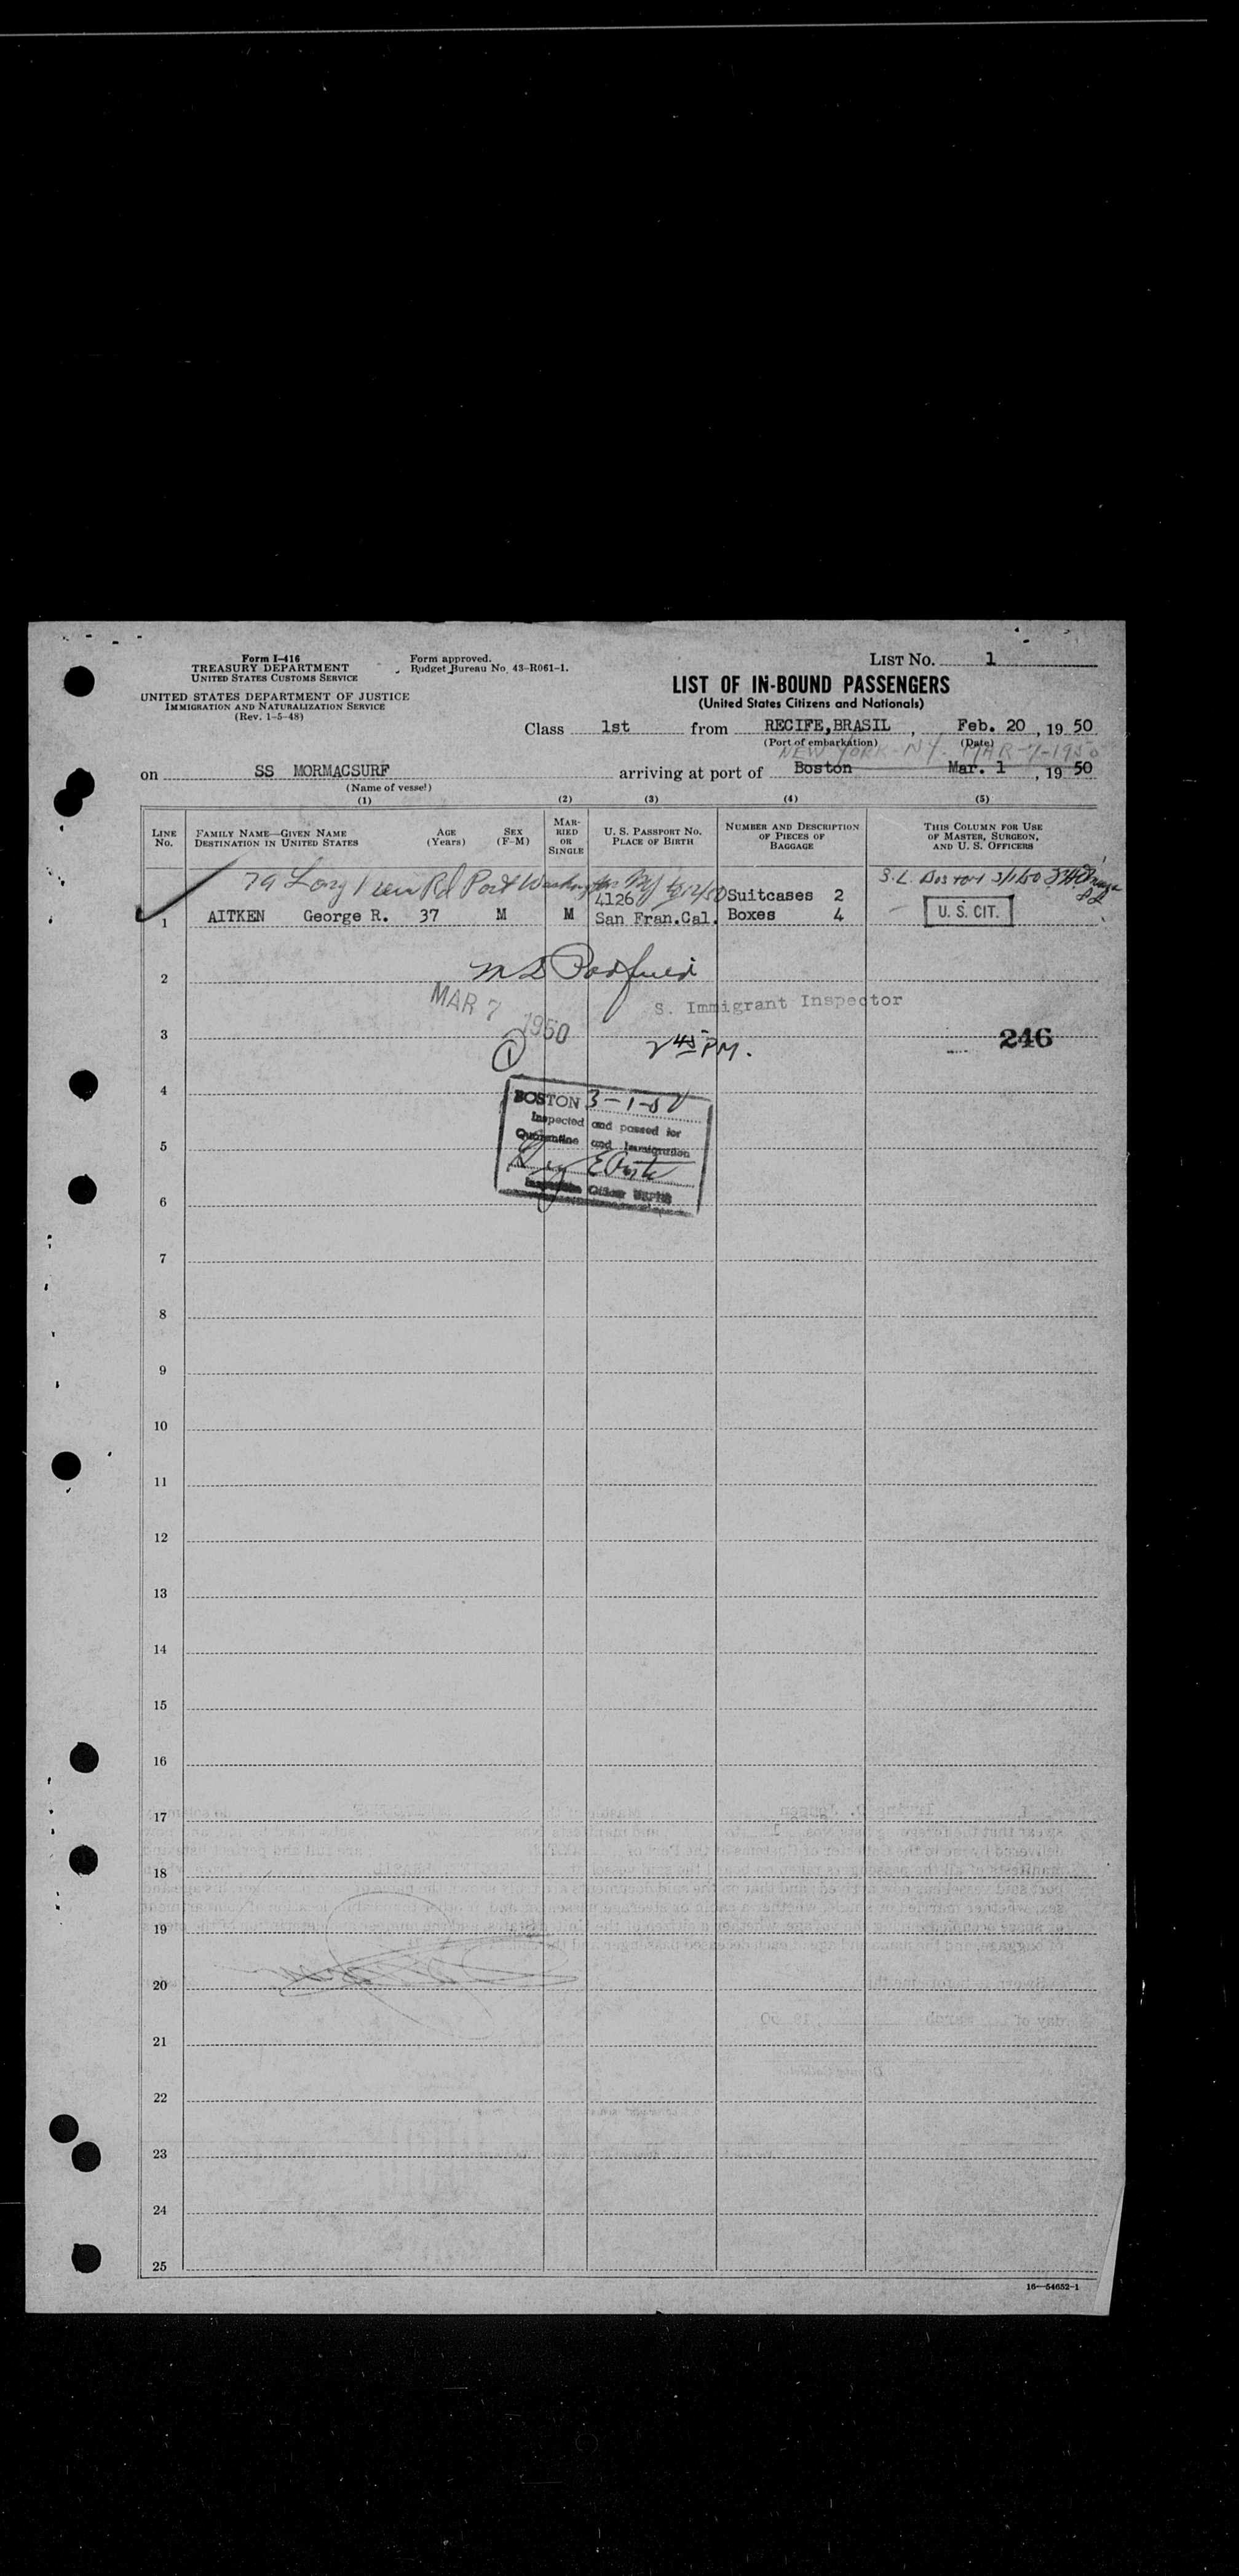 Form I-416
TREASURY DEPARTMENT
UNITED STATES CUSTOMS SERVICE
UNITED STATES DEPARTMENT OF JUSTICE
IMMIGRATION AND NATURALIZATION SERVICE
(Rev. 1-5-48)
Form approved.
Budget Bureau No. 43-R061-1.
LIST NO. 1
LIST OF IN-BOUND PASSENGERS
(United States Citizens and Nationals)
Class 1st from RECIFE,BRASIL , Feb. 20 , 19 50
(Port of embarkation) (Date)
NEW YORK - N.Y. MAR -7-1950
on SS MORMACSURF arriving at port of Boston Mar. 1 , 19 50
(Name of vessel)
(1) (2) (3) (4) (5)
LINE NO. FAMILY NAME—GIVEN NAME DESTINATION IN UNITED STATES AGE (Years) SEX (F-M) MARRIED OR SINGLE U. S. PASSPORT NO. PLACE OF BIRTH NUMBER AND DESCRIPTION OF PIECES OF BAGGAGE THIS COLUMN FOR USE OF MASTER, SURGEON, AND U. S. OFFICERS
79 Long View Rd Port Washington NY S.L. Boston 3/1/50
4126 Suitcases 2
1 AITKEN George R. 37 M M San Fran.Cal. Boxes 4 U. S. CIT.
2
MAR 7 1950 S. Immigrant Inspector
3 2 45 PM. 246
1
4
BOSTON 3-1-50
Inspected and passed for
5 Quarantine and Immigration
Officer USPHS
6
7
8
9
10
11
12
13
14
15
16
17
18
19
20
21
22
23
24
25
16—54652-1